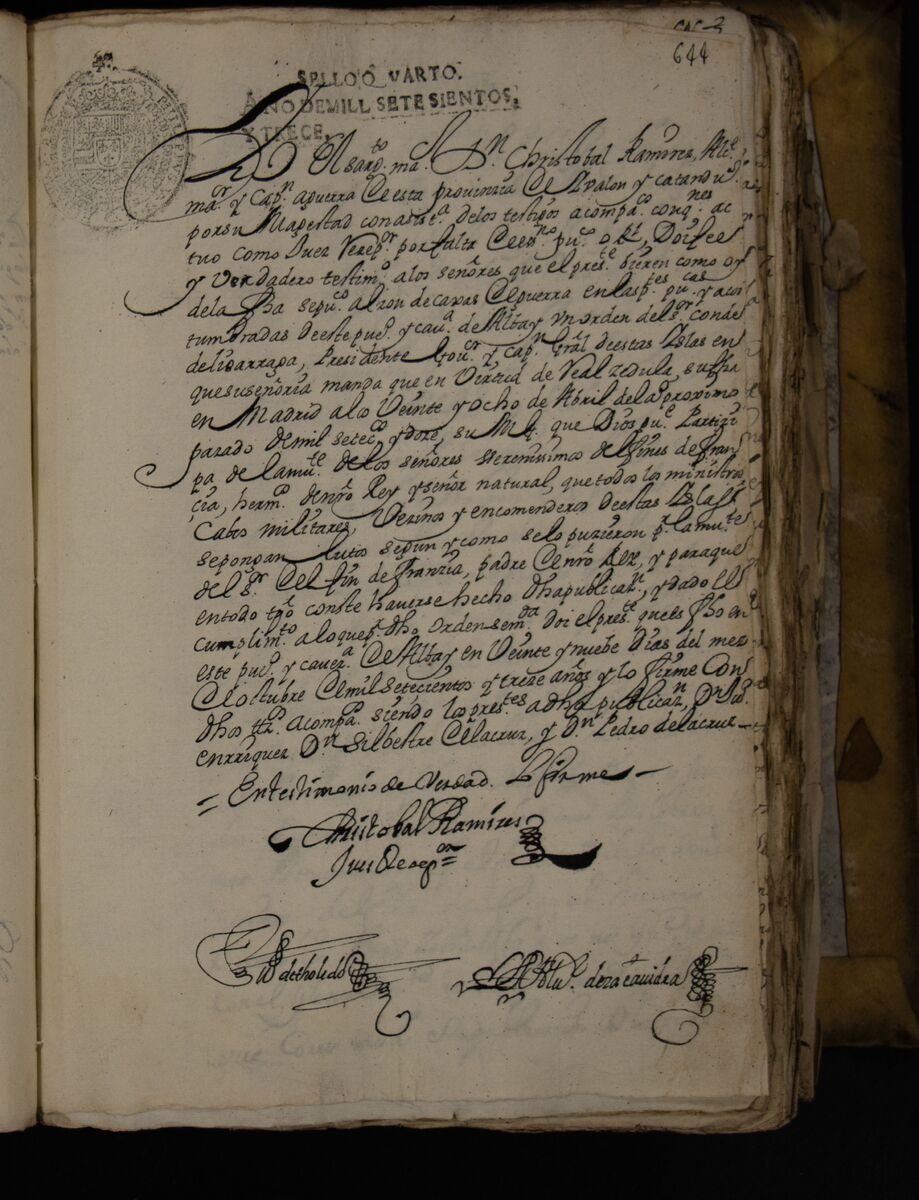 644
SELLO QVARTO.
AÑO DE MILL SETESIENTOS,
Y TRECE,
El Sarg.to ma.r Dn Christobal Ramires, Alc.e
ma.or y Cap.n aguerra de esta provinzia de Yvalon y catandu.s
por su Magestad con asist.a de los testigos acompa.os conq.nes ac
tuo como Juez Rezep.or por falta de es.no pu.co o Rl, Doi fee
y Verdadero testim.o a los señores que el pres.te bieren como oy
dela fha se pu.co al zon de caxas de guerra en las p.tes pu.cas y acos
tumbradas de este pue.o y cau.a de Albay Vn orden del s.or conde
de lizarraga, Presidente Gou.or y Cap.n Gral de estas Yslas en
que su señoria manda que en Virtud de Real zedula, su fha
en Madrid a los Veinte y ocho de Abril del a.o proximo
pazado de mil setec.os y doze, su Mg.d que Dios gu.e Partizi
pa de la mu.te de los señores serenissimos delfines de fran
çia, herm.o de nro Rey y señor natural, que todos los ministros
Cabos militares, Vezinos y encomenderos de estas Yslas
se pongan lutos segun y como se lo puzieron p.r la mu.te
del s.r Delfin de franzia, padre de nro Rey, y para que
en todo tpo conste haverse hecho dha publicaz.n, y dado el
cumplim.to a lo que p.r dho orden se m.da Doi el pres.te que es fho en
este pue.o y cauez.a de Albay en Veinte y nuebe Dias del mes
de octubre de mil setecientos y treze años y lo firme Con
dhos tt.gos acompa.os siendo los pres.tes a dha publicaz.n Dn Ju.o
enrriquez Dn Silbestre de la cruz, y D.n Pedro de la cruz
= En testimonio de Verdad. Lo firme
Christobal Ramires
Jues Recep.or =
de tholedo
de zaauidra